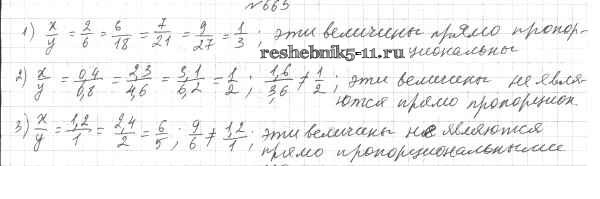 № 665
1) x/y = 2/6 = 6/18 = 7/21 = 9/27 = 1/3 ; эти величены прямо пропор-
reshebnik5-11.ru циональны
2) x/y = 0,4/0,8 = 2,3/4,6 = 3,1/6,2 = 1/2 ; 1,6/3,6 ≠ 1/2 ; эти величины не явля-
ются прямо пропорцион.
3) x/y = 1,2/1 = 2,4/2 = 6/5 ; 9/6 ≠ 1,2/1 ; эти величины не являются
прямо пропорциональными